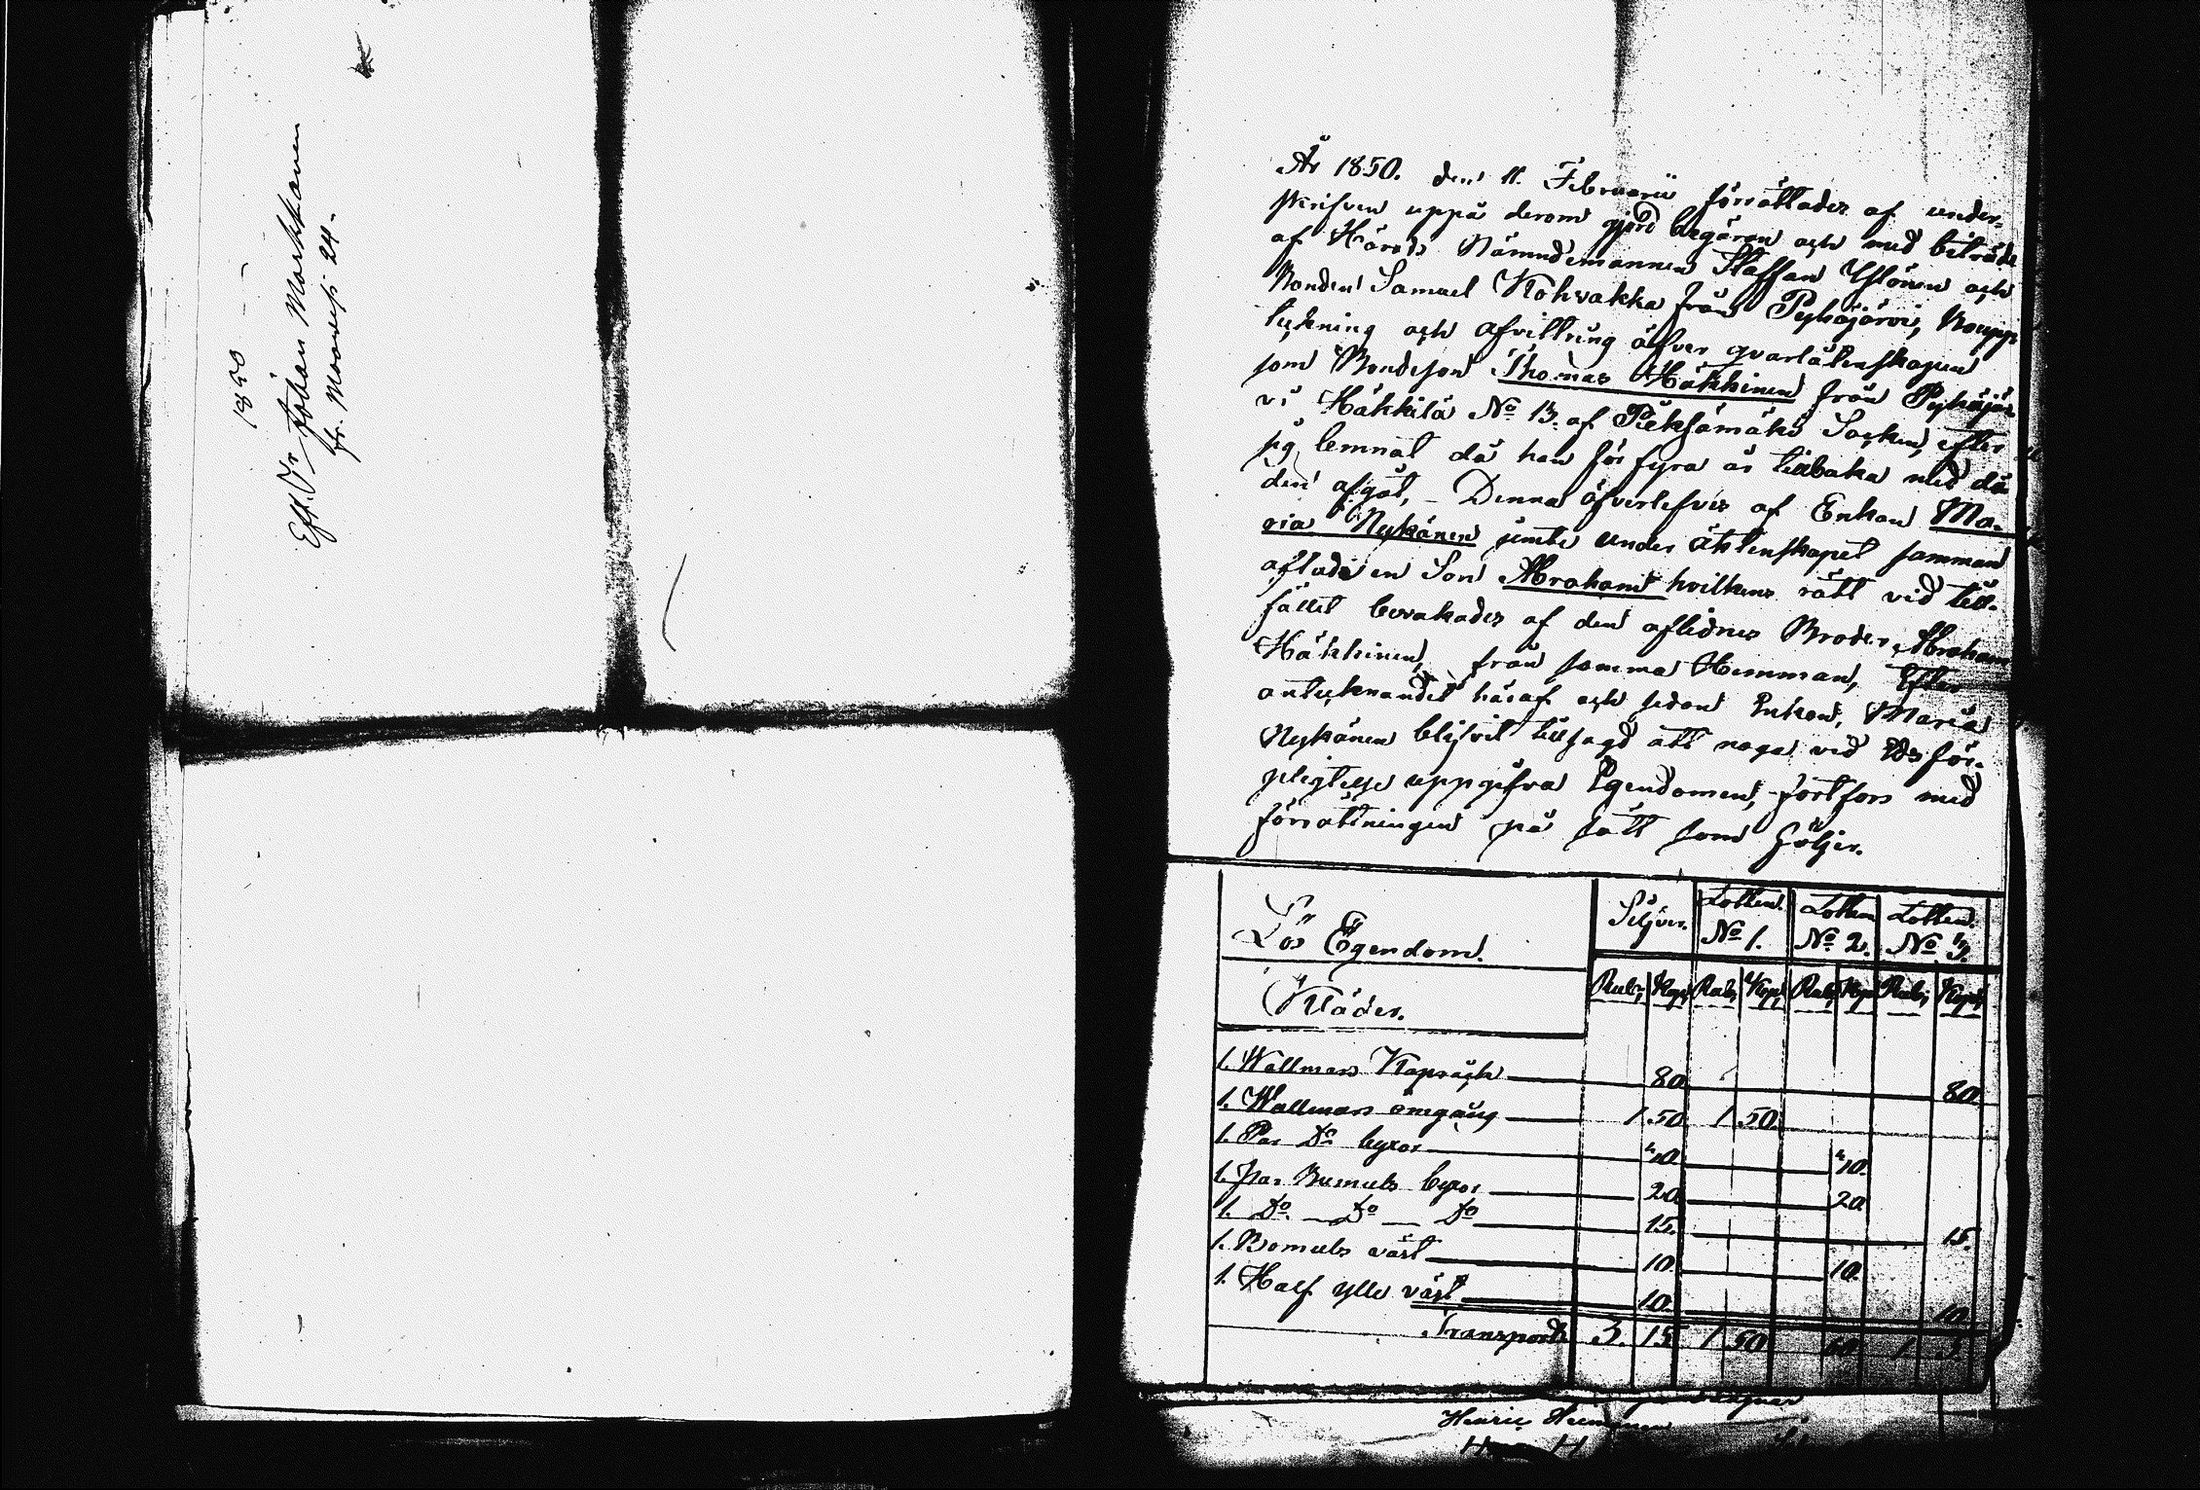 1850 — —
Eft. Dr Johan Markkanen
År 1850. den 11. Februarii förrättades af under-
skrifven uppå derom gjord begäran och med biträde
af Härads Nämndemannen Staffan Ylönen och
Bonden Samuel Kohvakka från Pyhäjärvi, Boupp-
tekning och afvittring öfver qvarlåtenskapen
som Bondeson Thomas Häkkinen från Pyhäjär
vi Häkkilä No 13. af Pieksämäki Socken, efter
sig lemnat då han för fyra år tillbaka med dö
den afgåt, – Denna öfverlefves af Enkan Ma-
ria Nykänen jemte under äktenskapet samman
aflade en Son Abraham hvilkens rätt vid till-
fället bevakades af den aflidnes Broder, Abraham
Häkkinen, från samma Hemman, Efter
antecknandet häraf och sedan Enkan, Maria
Nykänen blifvit tillsagd att noga vid Eds för-
pligtelse uppgifva Egendomen, fortfors med
förrättningen på sätt som följer.
Lös Egendom. Silfver. Lotten No 1. Lotten No 2. Lotten No 3.
Kläder. Rub; Kop; Rub; Kop; Rub; Kop; Rub; Kop;
1. Wallmars Kaprock 80. 80.
1. Wallmars 1 50. 1 50.
1. Par Do byxor 10. 10.
1. Par Bumuls byxor 20. 20.
1. Do Do Do 15. 15.
1. Bomuls väst 10. 10.
1. Half ylle väst 10. 10.
Transport 3. 15. 1 50. 1. 5.